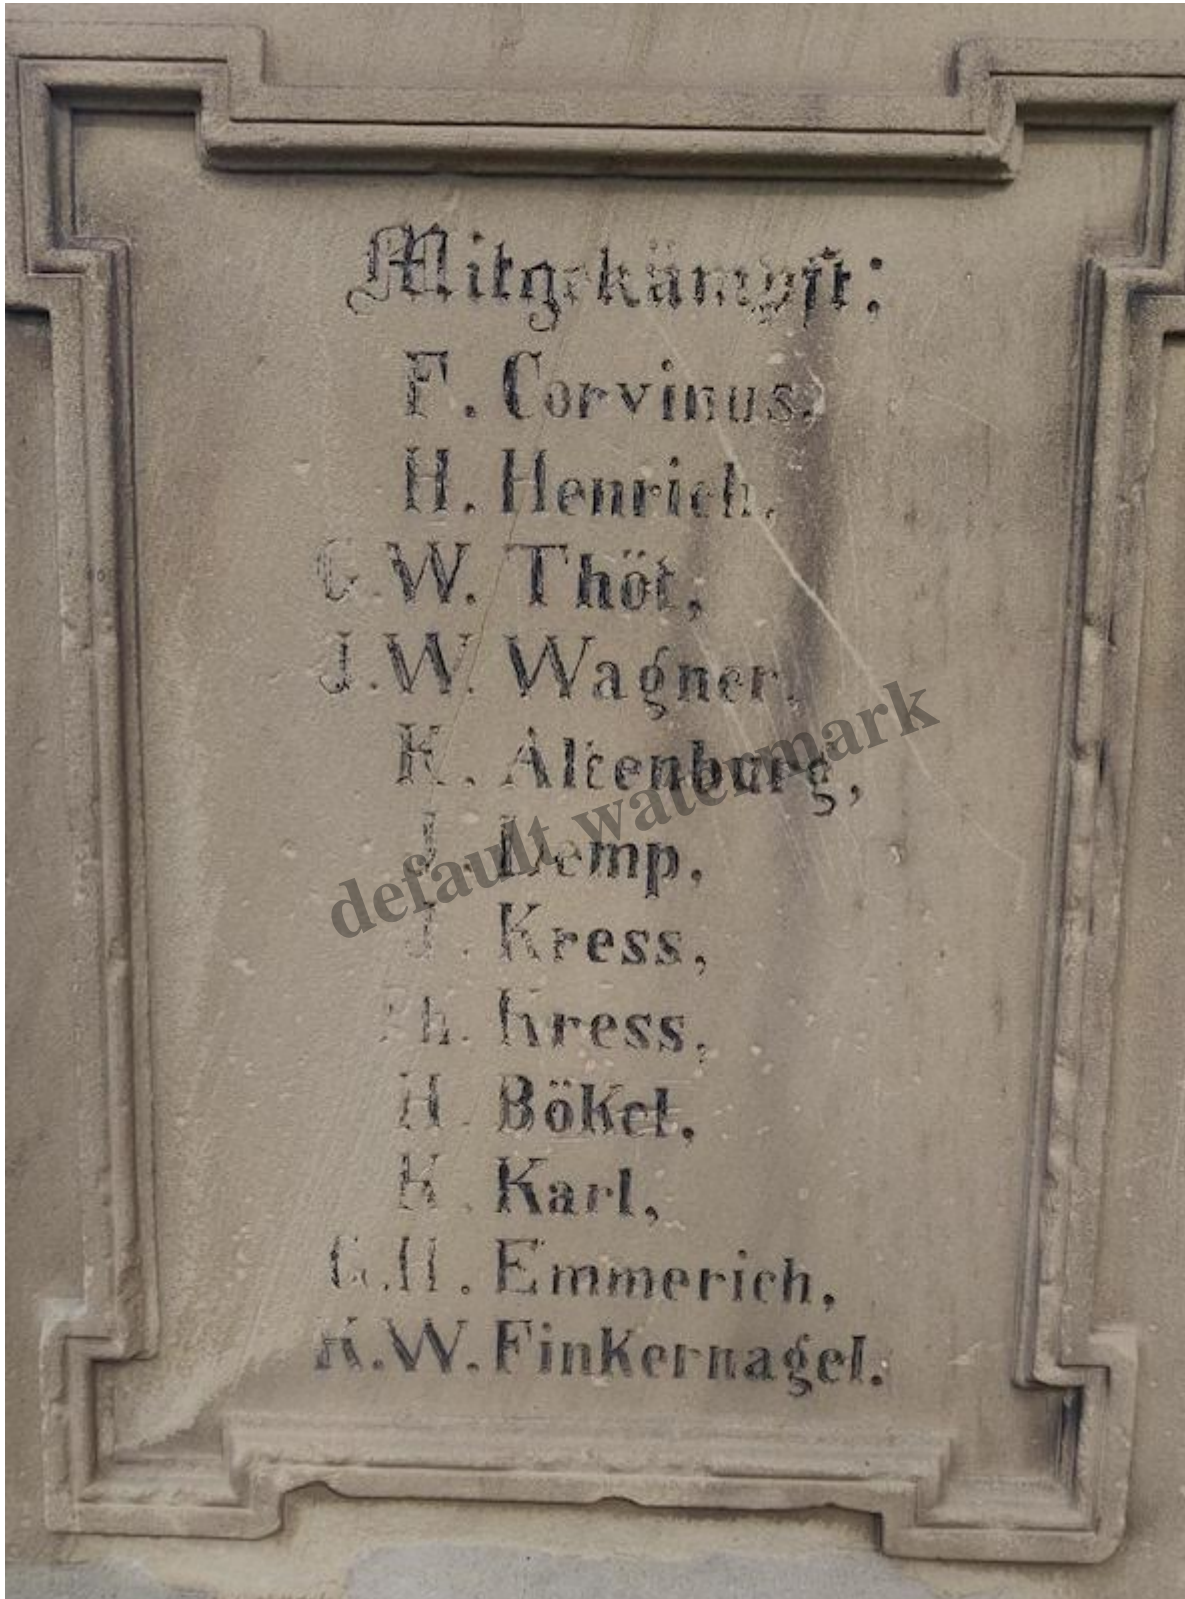 Mitgekämpft:
F. Corvinus,
H. Henrich,
C. W. Thöt,
J. W. Wagner,
K. Altenburg,
J. Demp,
J. Kress,
Ph. Kress,
H. Bökel,
K. Karl,
G. H. Emmerich,
K. W. Finkernagel.
default watermark